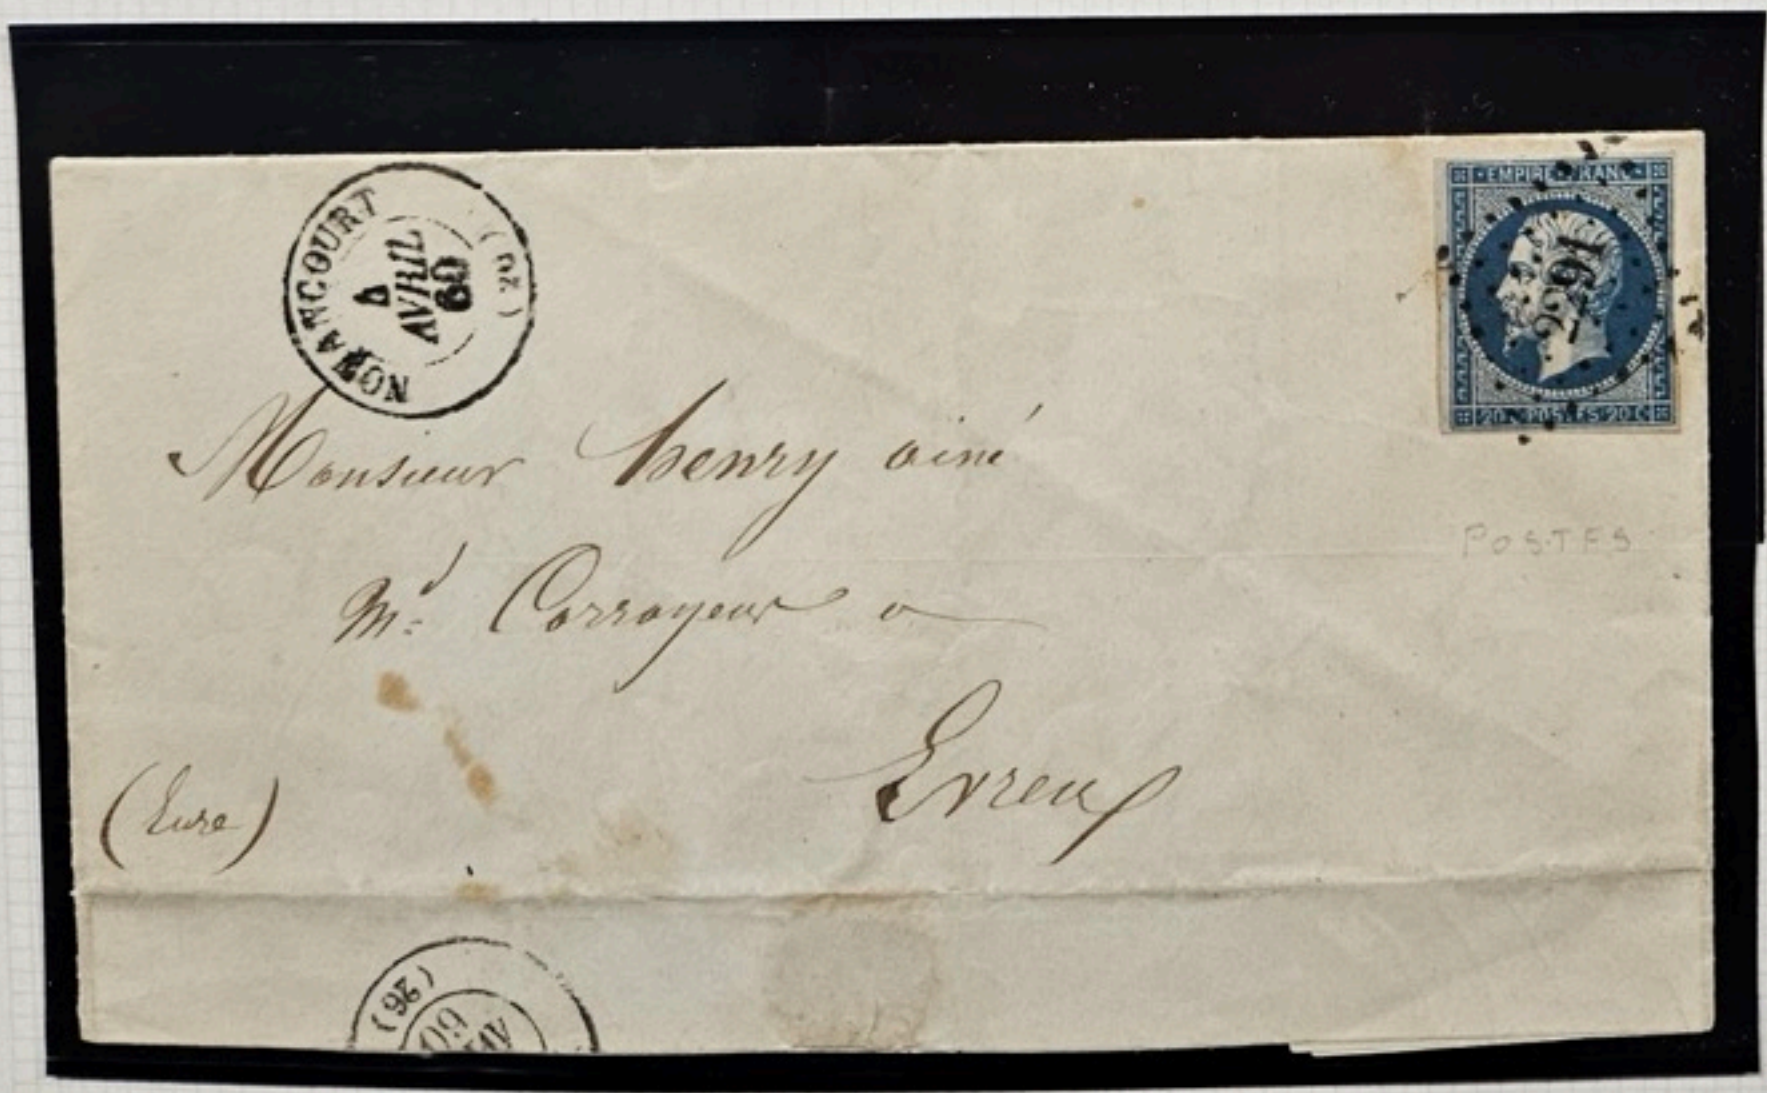 NONANCOURT
(26)
4
AVRIL
60
EMPIRE FRANC
2291
20 C POSTES 20 C
Monsieur henry ainé
POSTES
Md Corroyeur a
Evreux
(Eure)
(26)
AV
60